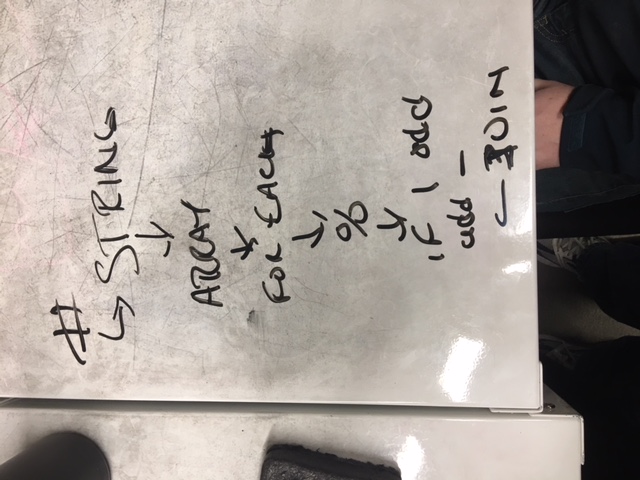 #
↳ STRING
↓
ARRAY
↓
FOR EACH
↓
%
↓
IF 1 odd
add –
← JOIN